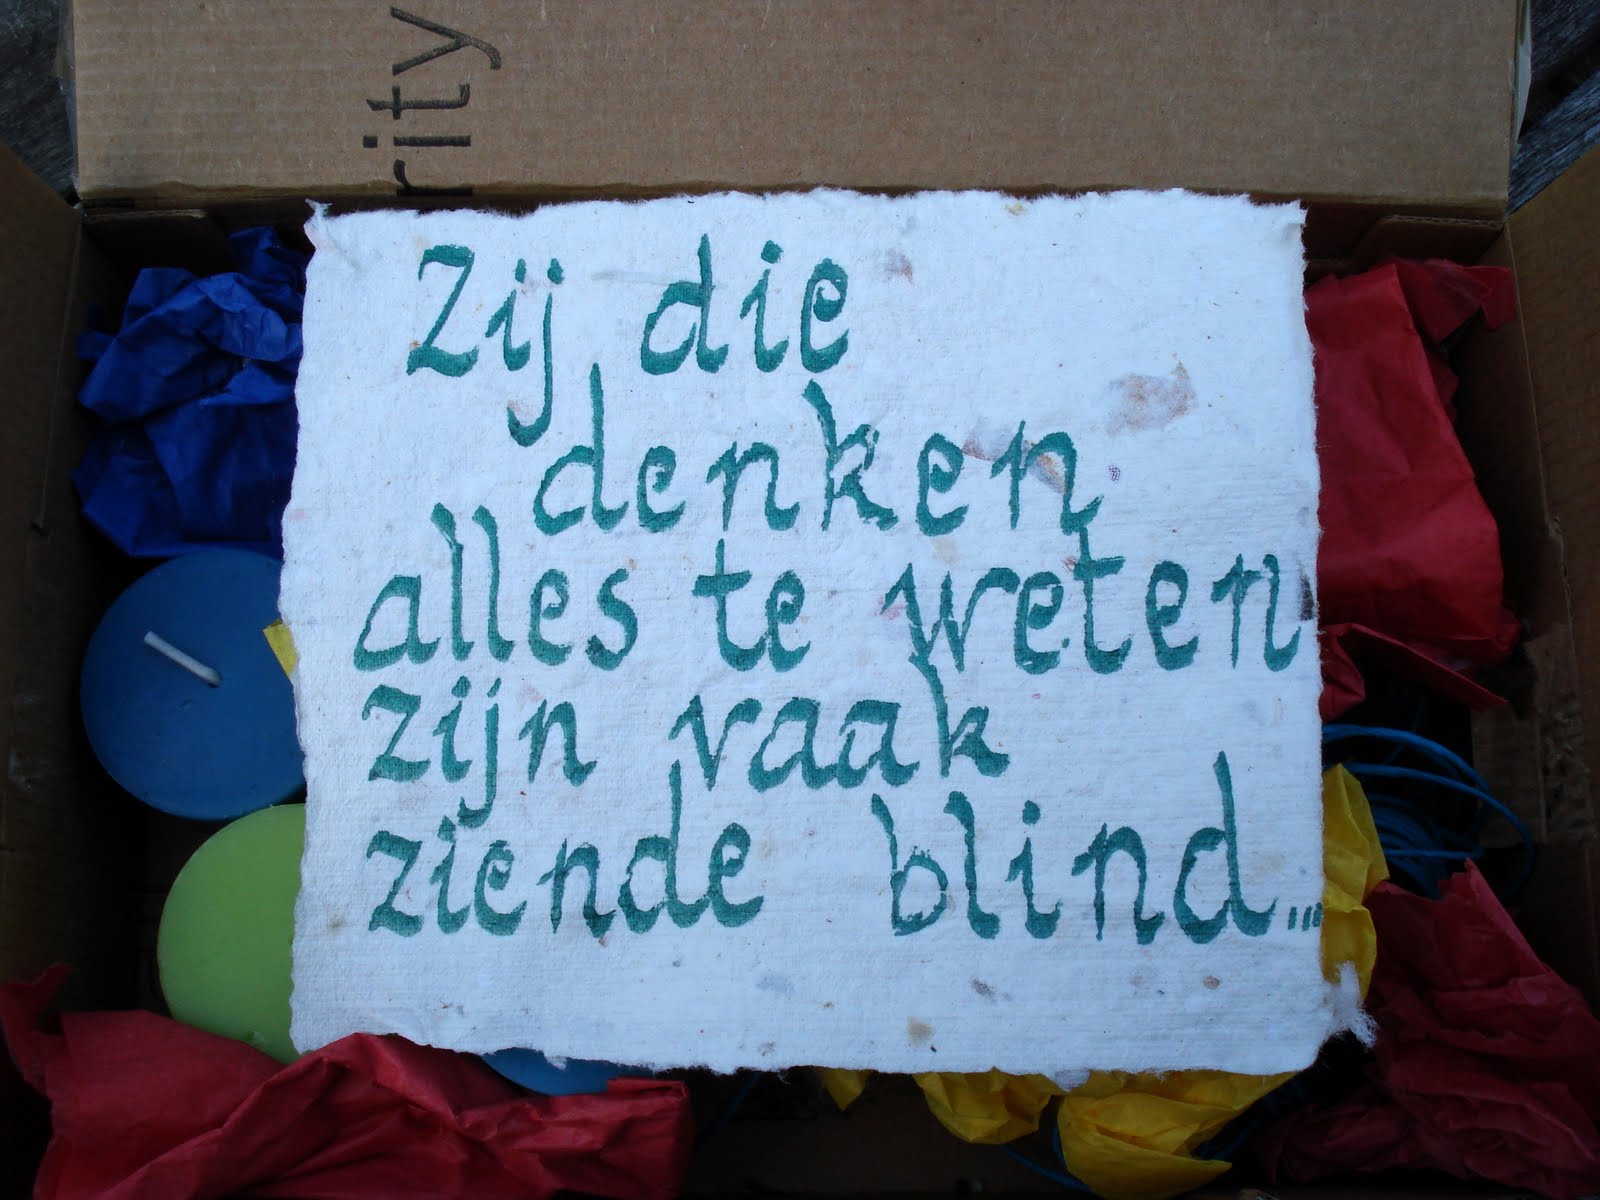 rity
Zij die
denken
alles te weten
zijn vaak
ziende blind...